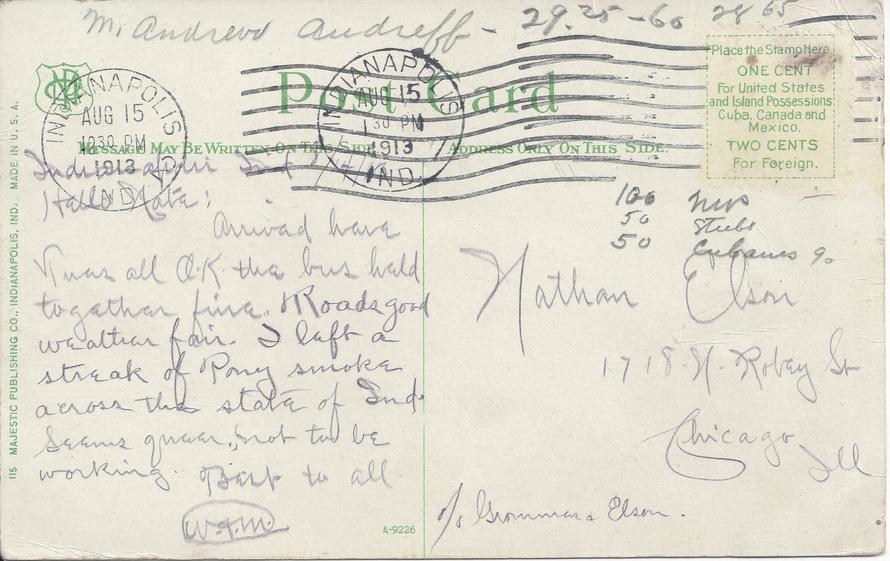 Mr Andrew Andreff - 29.25 - 60 28 65
Post Card
Place the Stamp Here
ONE CENT
For United States
and Island Possessions
Cuba, Canada and
Mexico.
TWO CENTS
For Foreign.
INDIANAPOLIS
AUG 15
1030 PM
1913
IND.
INDIANAPOLIS
AUG 15
30 PM
1913
IND.
MESSAGE MAY BE WRITTEN ON THIS SIDE
ADDRESS ONLY ON THIS SIDE.
Indianapolis Ind
Hello Nate:
Arrived here
was all O.K. the bus held
together fine. Roads good
weather fair. I left a
streak of Pony smoke
across the state of Ind.
Seems queer, not to be
working. Best to all
W.F.M.
100
50 Stubs
50 Cubanas 90
Nathan Elson
1718 N. Robey St
Chicago
Ill
c/o Grommes & Elson.
A-9226
115 MAJESTIC PUBLISHING CO., INDIANAPOLIS, IND. MADE IN U.S.A.